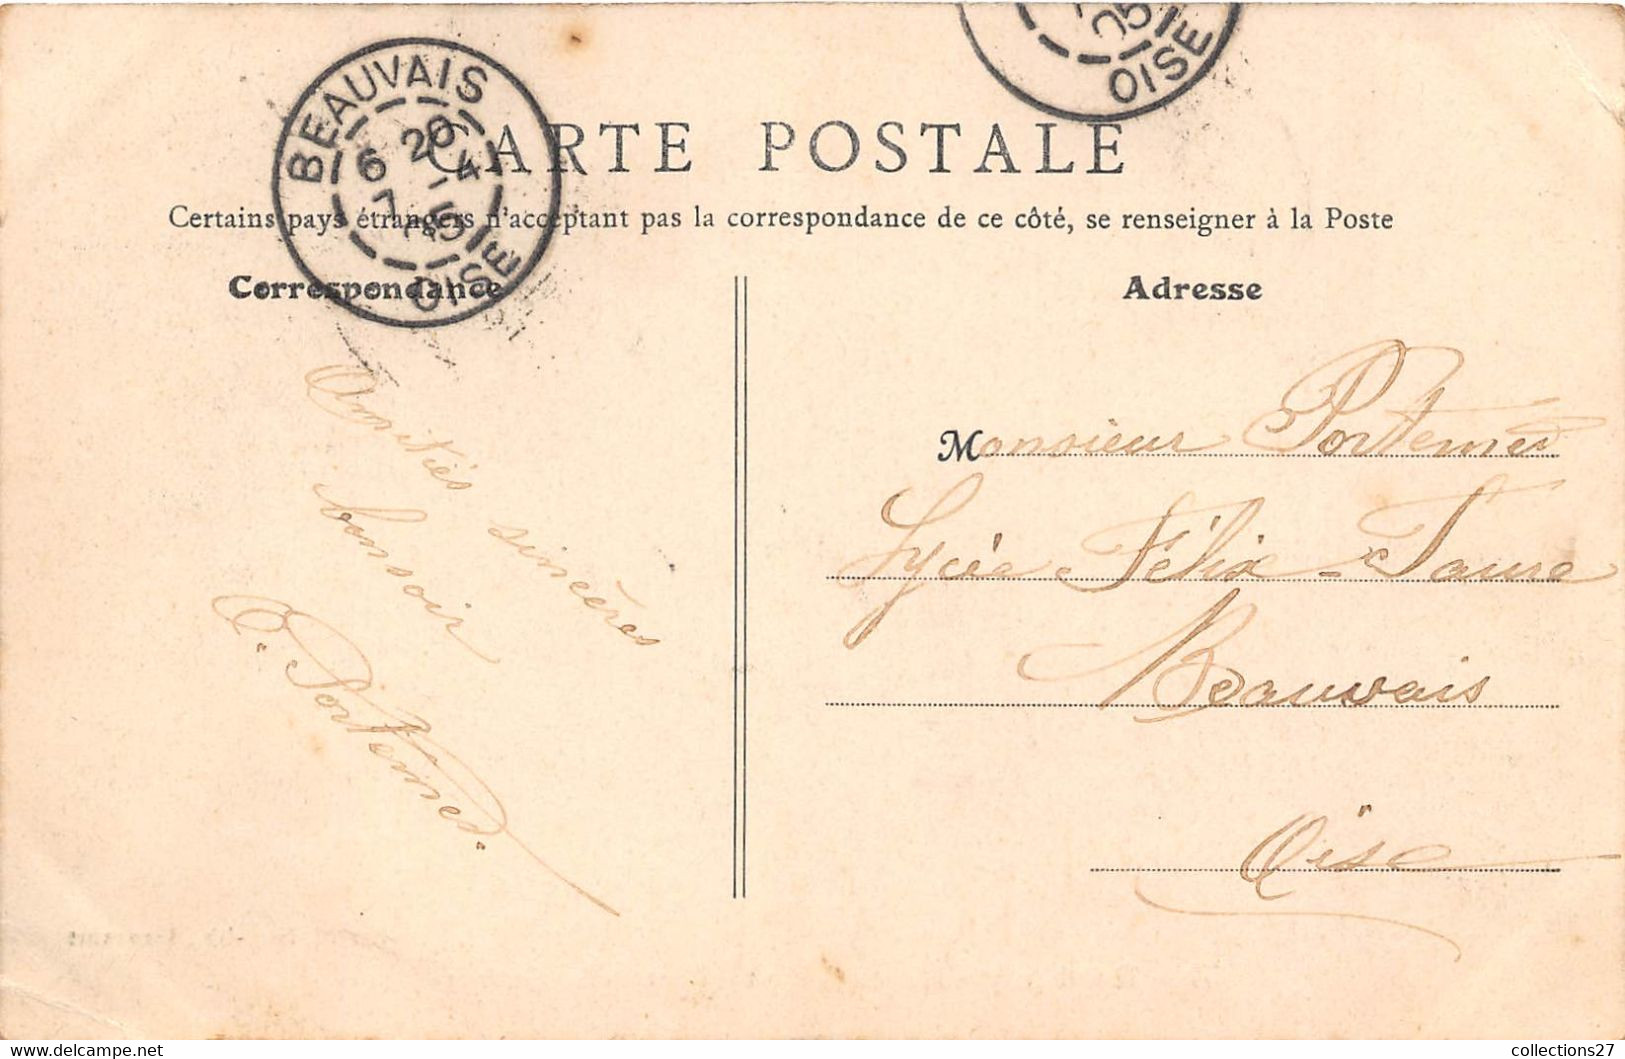 BEAUVAIS
6 20
7 -4
05
OISE
05
OISE
CARTE POSTALE
Certains pays étrangers n'acceptant pas la correspondance de ce côté, se renseigner à la Poste
Correspondance
Amitiés sincères
bonsoir
C. Portemer
Adresse
Monsieur Portemer
Lycée Félix-Faure
Beauvais
Oise
collections27